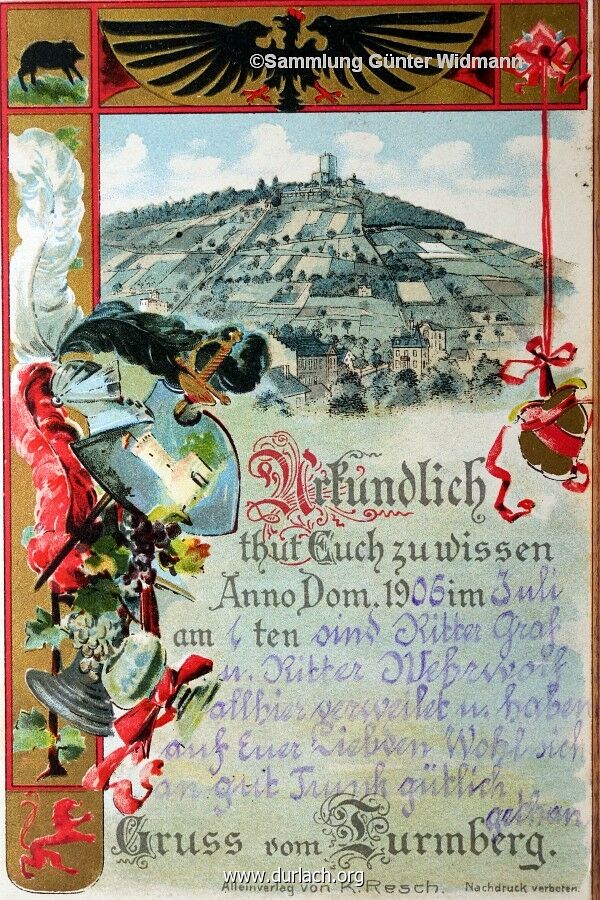 ©Sammlung Günter Widmann
Urkundlich
thut Euch zu wissen
Anno Dom. 1906 im Juli
am 6 ten sind Ritter Graf
u. Ritter Wehrwolf
allhier verweilet u. haben
auf Euer Liebden Wohl sich
an gut Trunk gütlich
gethan
Gruss vom Turmberg.
www.durlach.org
Alleinverlag von K. Resch. Nachdruck verboten.